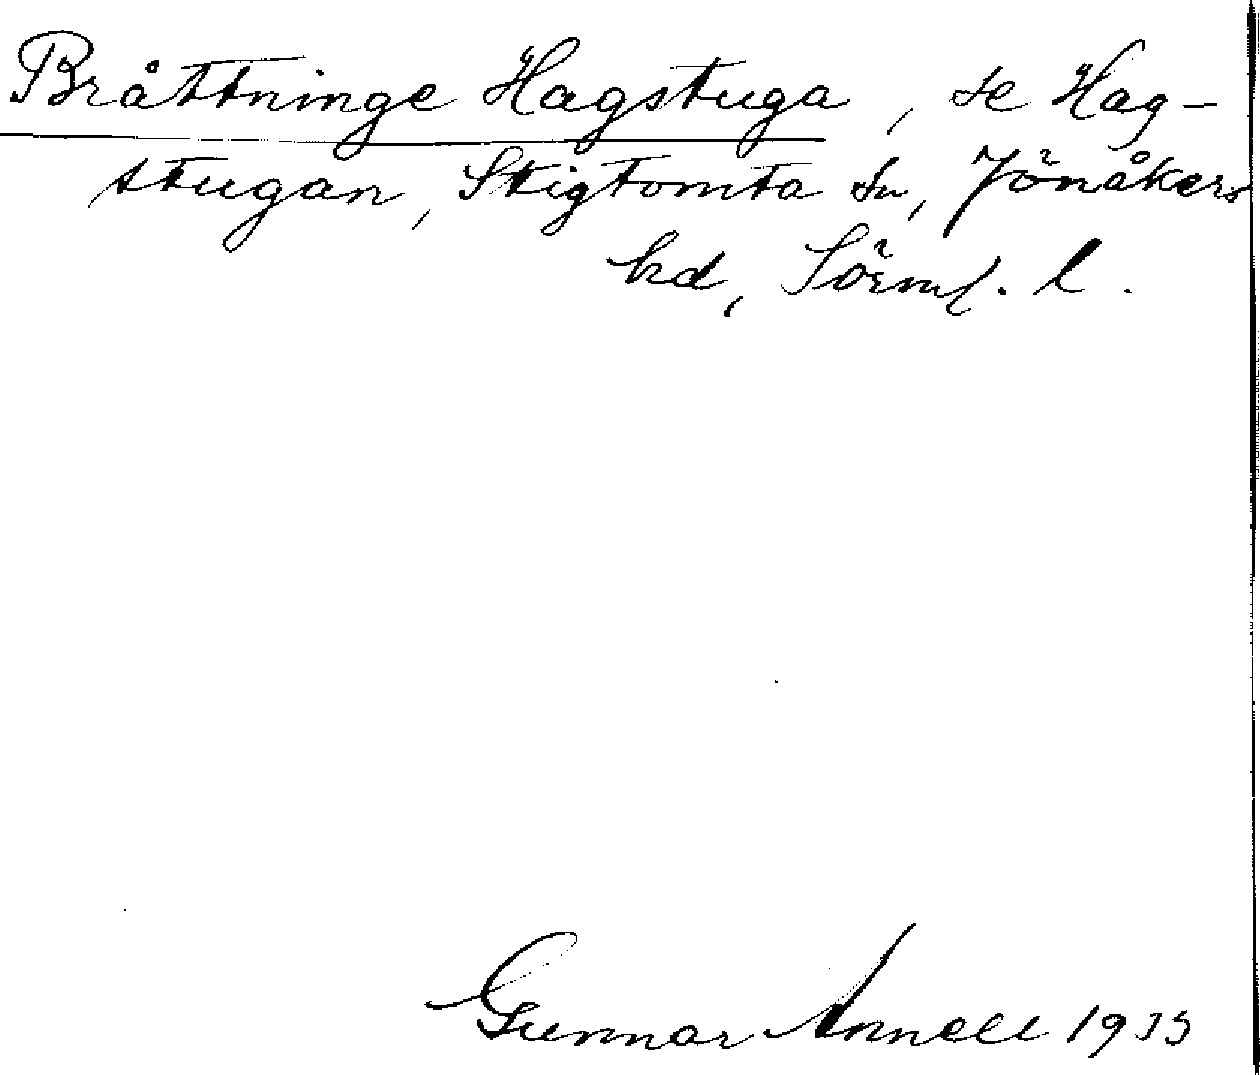 Bråttninge Hagstuga, se Hag-
stugan, Stigtomta sn, Jönåkers
hd, Sörml. l.
Gunnar Annell 1935